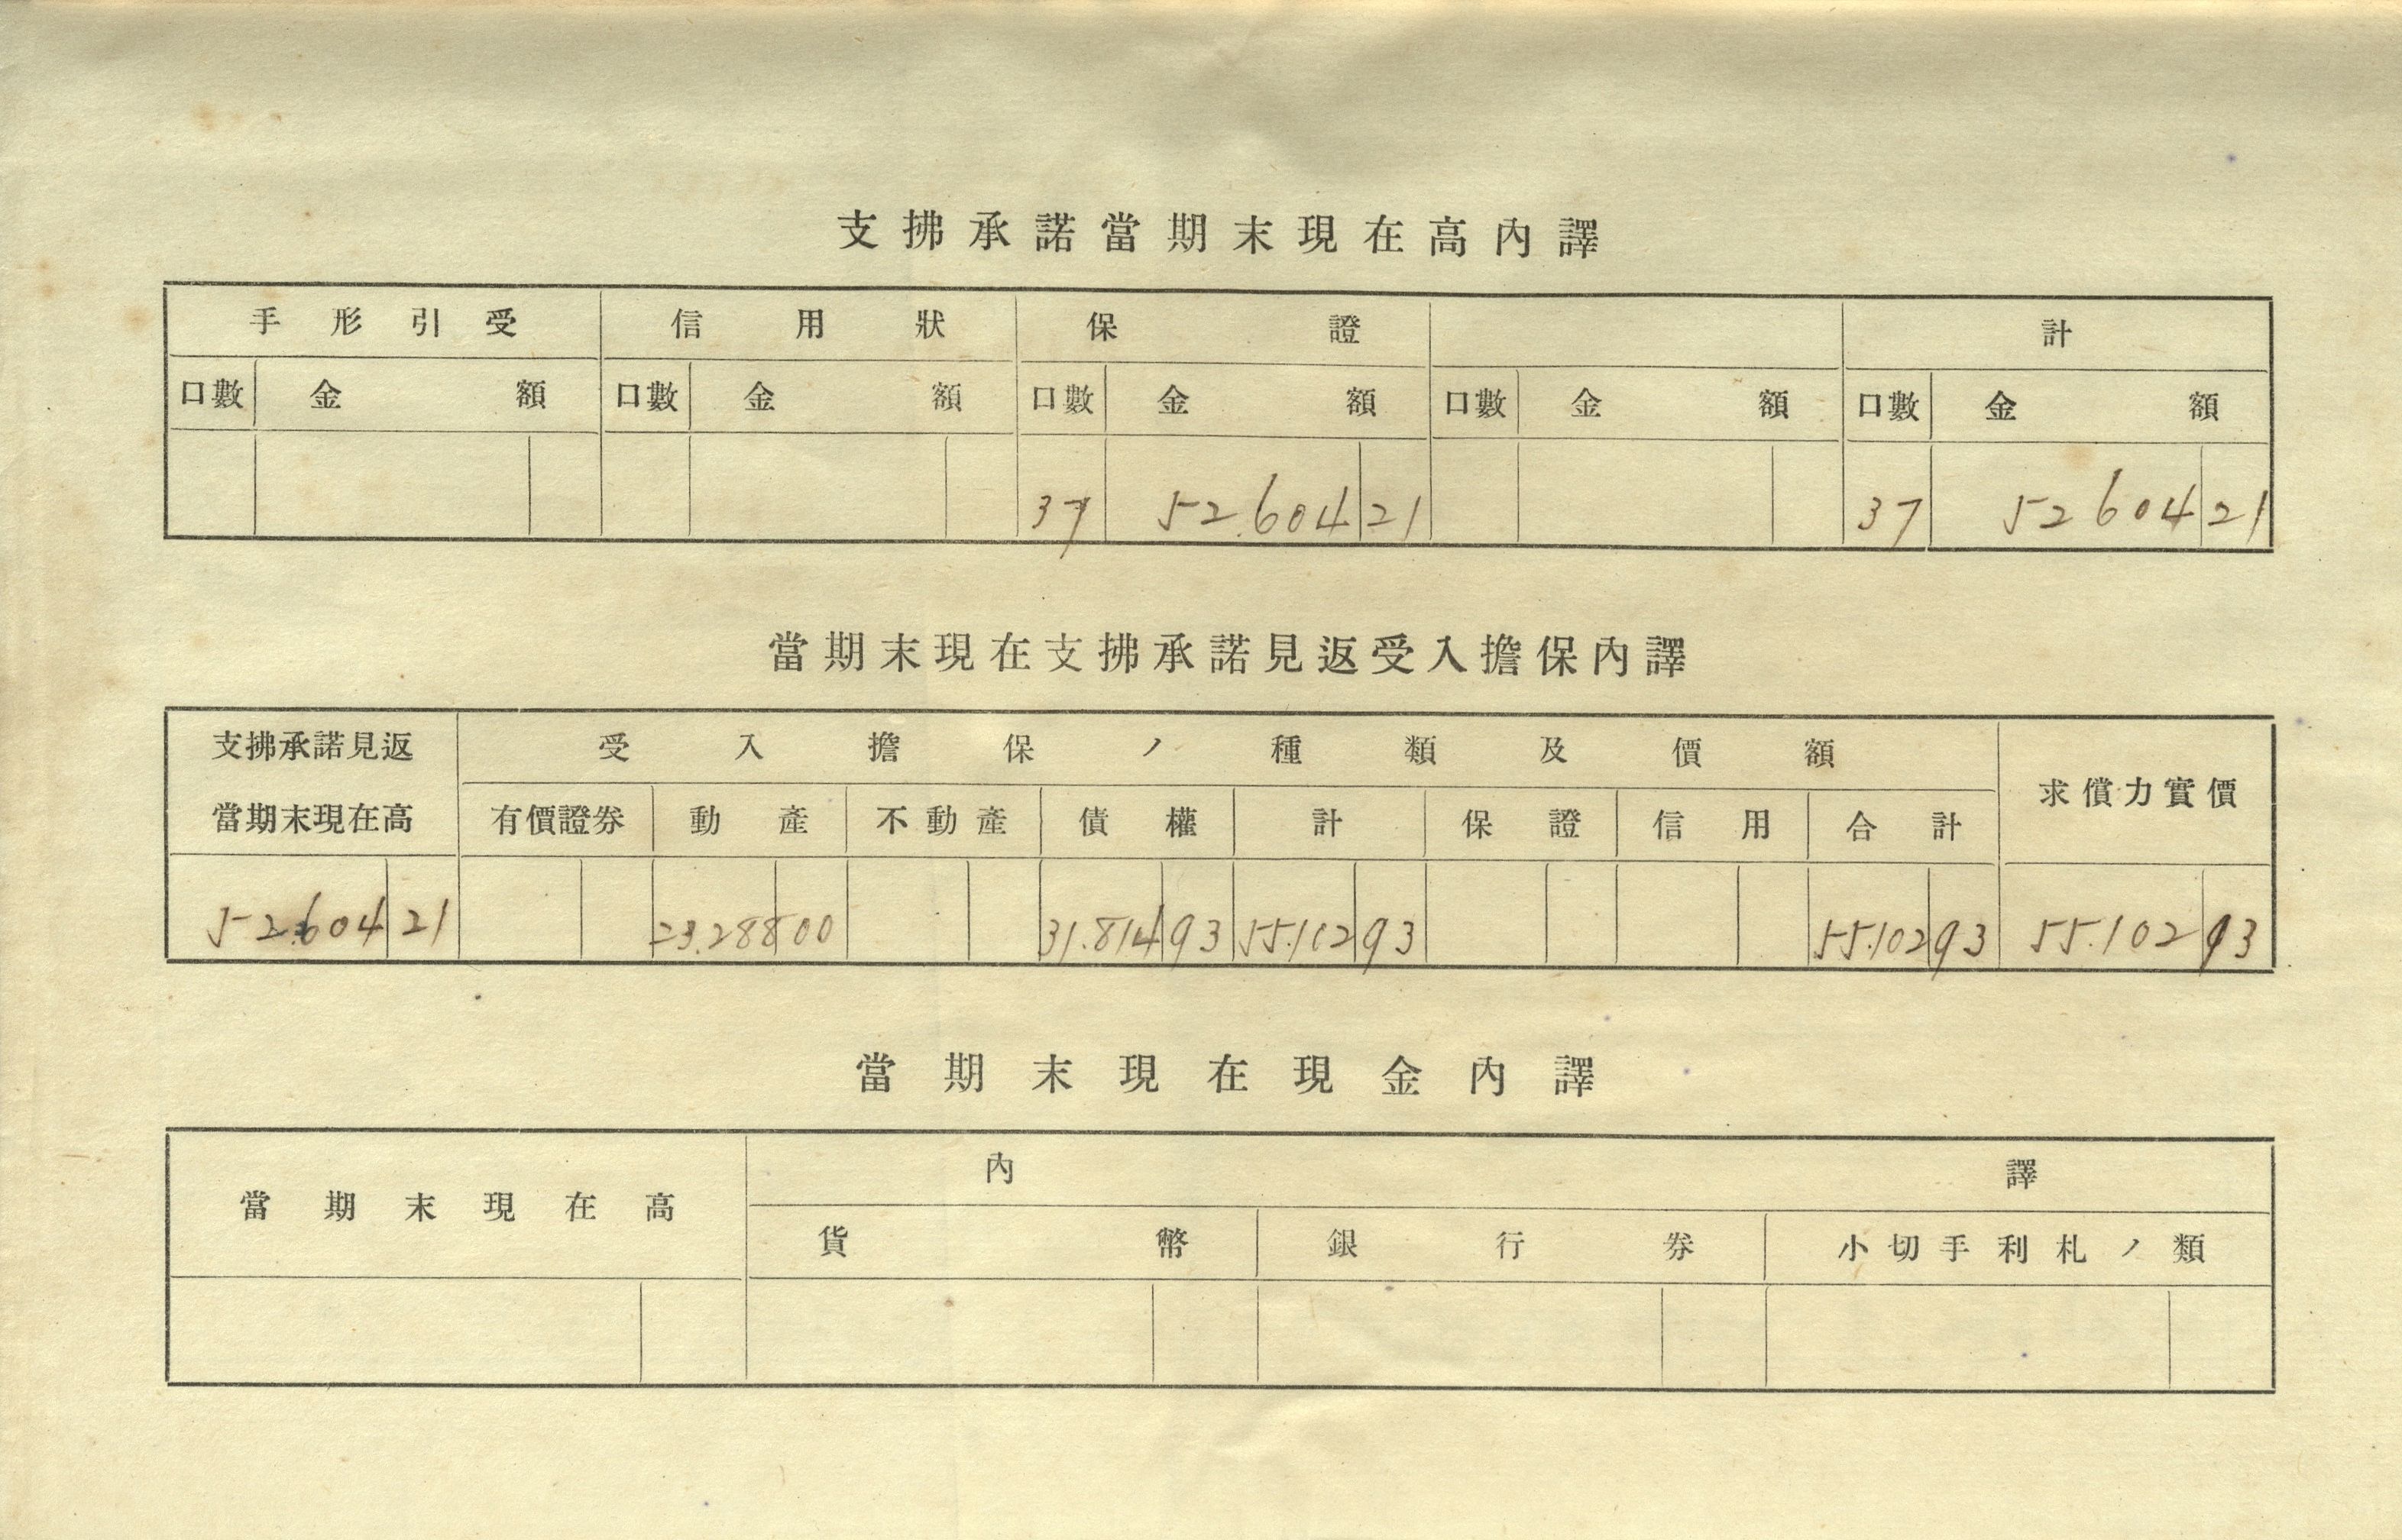 支拂承諾當期末現在高內譯
手形引受 信用狀 保證 計
口數 金額 口數 金額 口數 金額 口數 金額 口數 金額
37 52.604 21 37 52604 21
當期末現在支拂承諾見返受入擔保內譯
支拂承諾見返當期末現在高 受入擔保ノ種類及價額 求償力實價
有價證券 動產 不動產 債權 計 保證 信用 合計
52.604 21 23.288 00 31.814 93 55.102 93 55.102 93 55.102 93
當期末現在現金內譯
當期末現在高 內譯
貨幣 銀行券 小切手利札ノ類